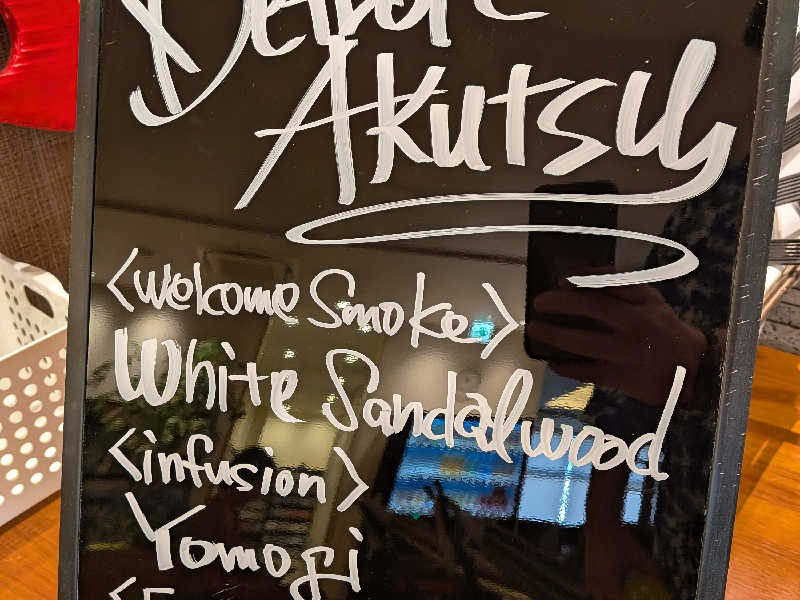 Akutsu
<welcome Smoke>
White Sandalwood
<infusion>
Yomogi